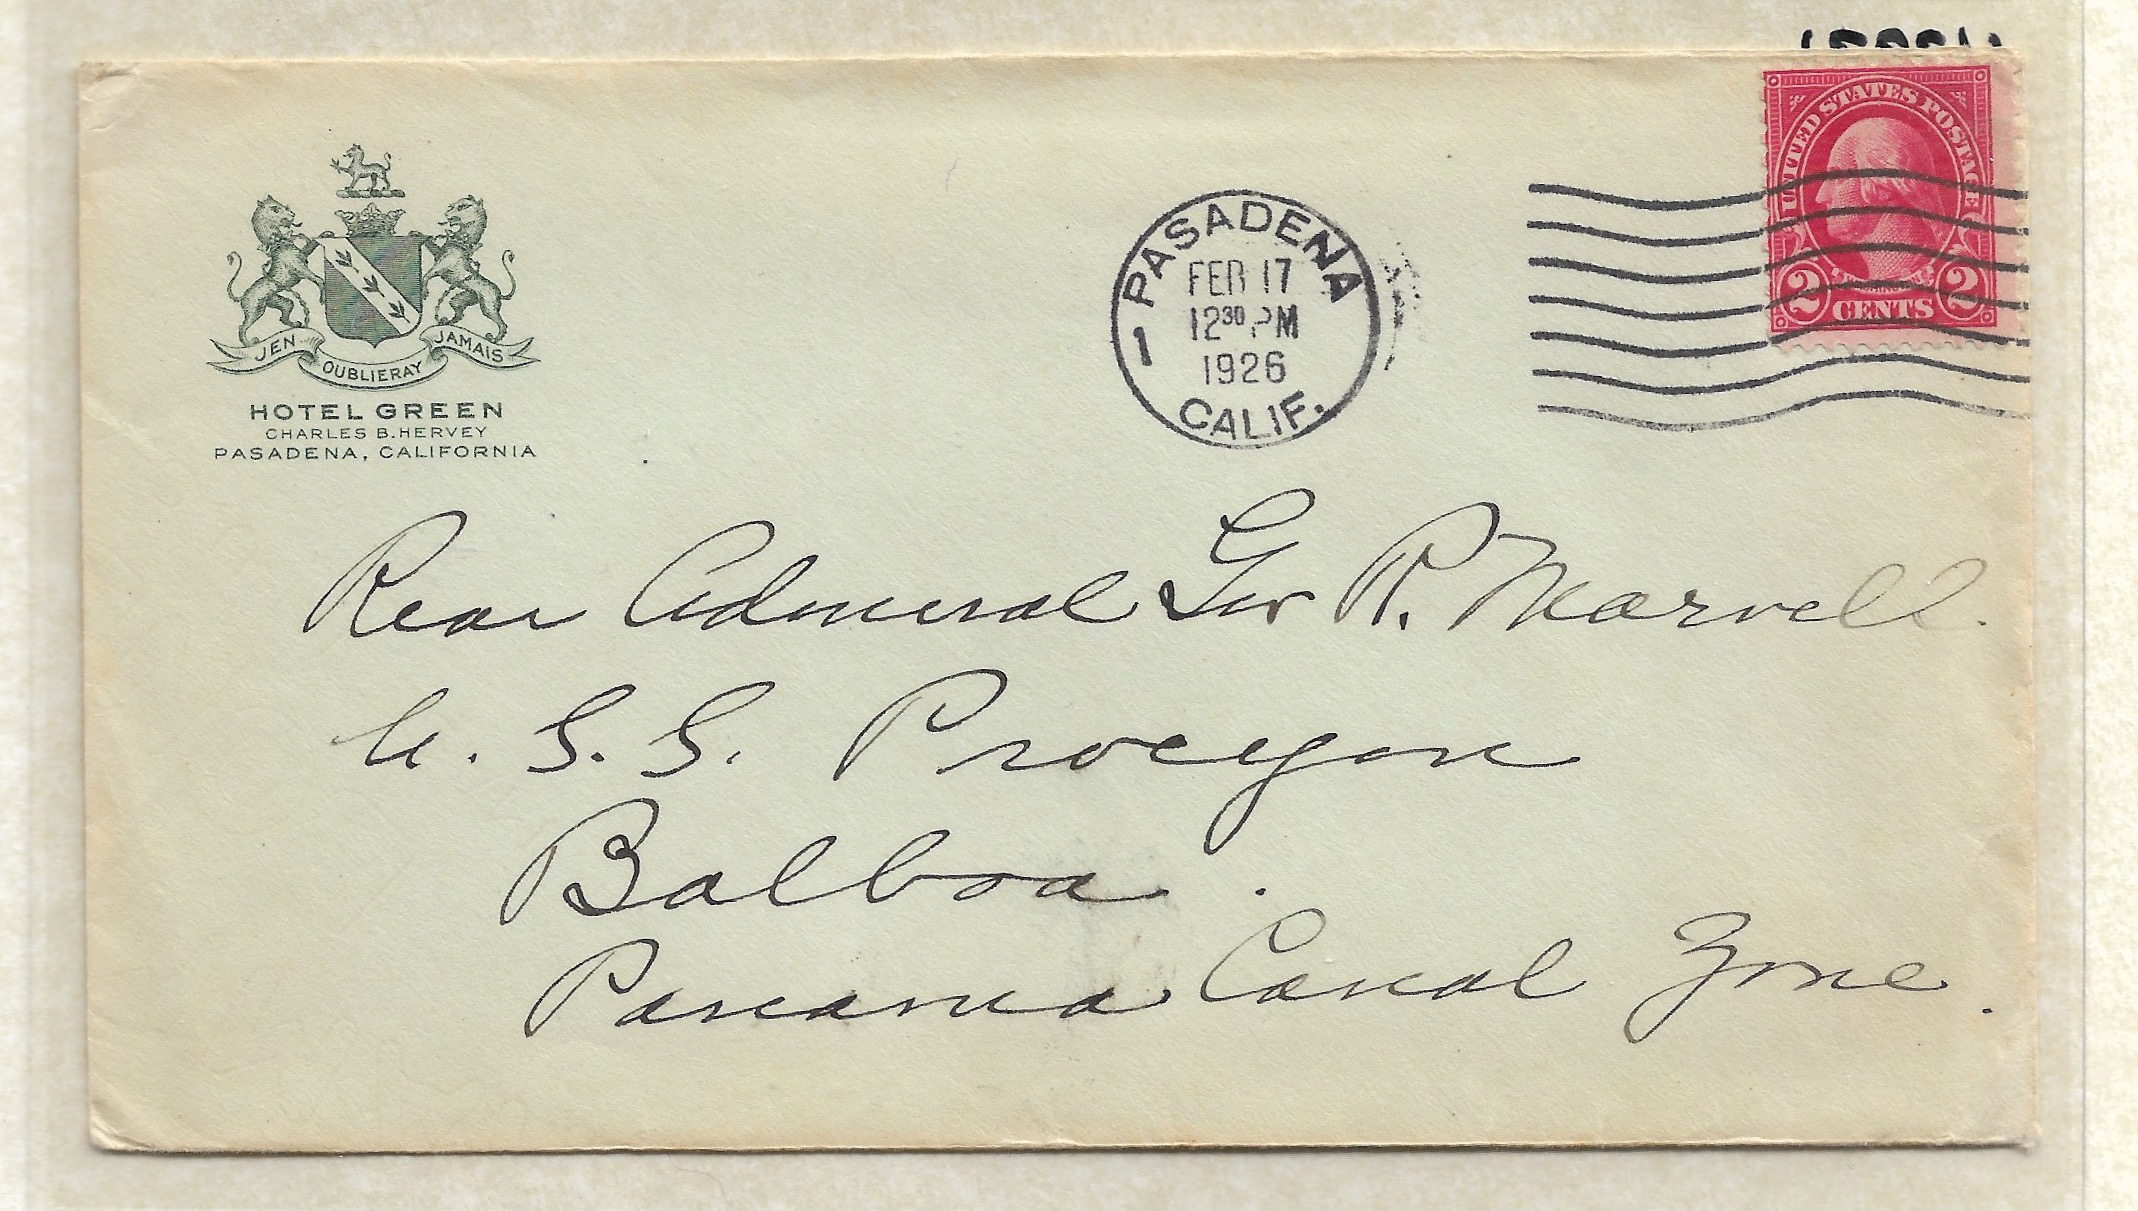 JEN OUBLIERAY JAMAIS
HOTEL GREEN
CHARLES B. HERVEY
PASADENA, CALIFORNIA
PASADENA
FEB 17
12 30 PM
1926
1
CALIF.
UNITED STATES POSTAGE
WASHINGTON
2 CENTS 2
Rear Admiral Geo R. Marvell.
U. S. S. Procyon
Balboa.
Panama Canal Zone.